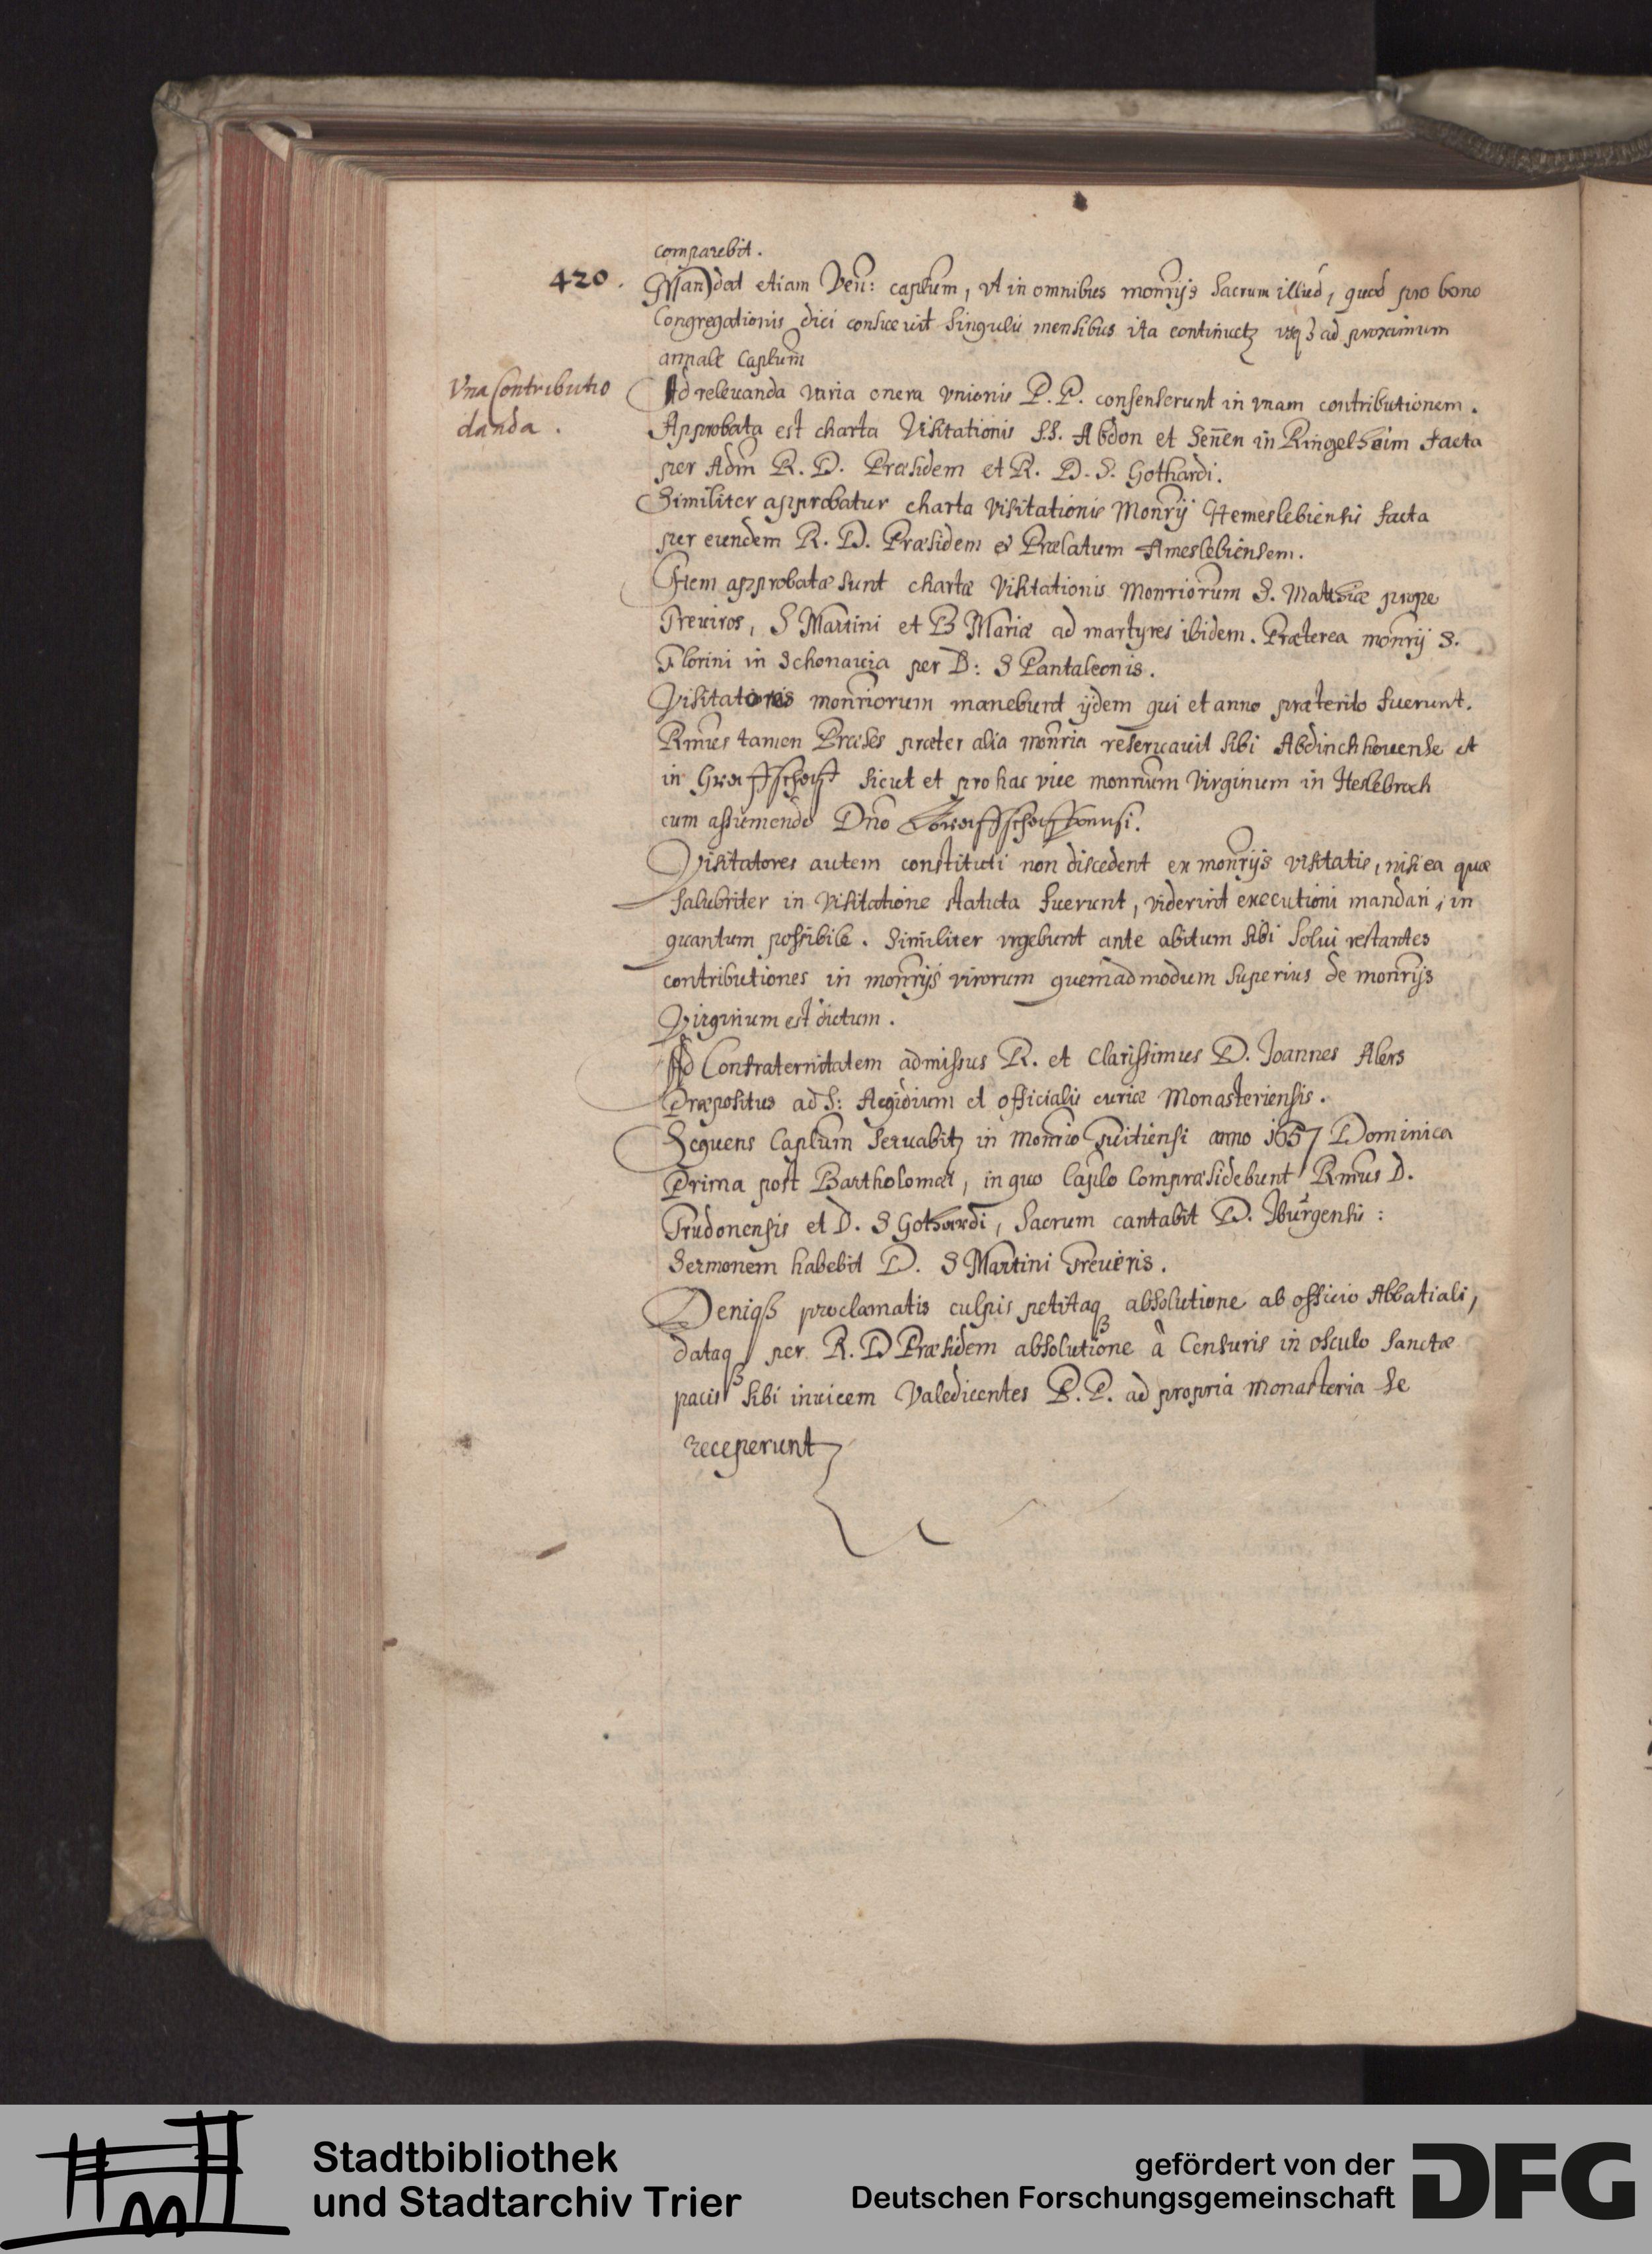 comparebit.
420.
Mandat etiam Ven: caplum, vt in omnibus monrijs Sacrum illud, quod pro bono
Congregationis dici consueuit singulis mensibus ita continuetz vsq3 ad proximum
annale Caplum
Vna Contributio
danda.
Ad releuanda varia onera vnionis P.P. consenserunt in vnam contributionem.
Approbata est charta Visitationis S.S. Abdon et Sennen in Ringelheim facta
per Adm R. D. Præsidem et R. D. S. Gothardi.
Similiter approbatur charta visitationis Monrij Hemeslebiensis facta
per eundem R. D. Præsidem & Prælatum Ameslebiensem.
Item approbatæ sunt chartæ Visitationis Monriorum S. Matthiæ prope
Treuiros, S Martini et B Mariæ ad martyres ibidem. Præterea monrij S.
Florini in Schonauia per D: S Pantaleonis.
Visitatores monriorum manebunt ijdem qui et anno præterito fuerunt.
Rmus tamen Præses præter alia monria reseruauit sibi Abdinckhouense et
in Graffschafft sicut et pro hac vice monrium Virginum in Heslebroch
cum assumendo Dno Graffschafftensi.
Visitatores autem constituti non discedent ex monrijs visitatis, nisi ea quæ
salubriter in Visitatione statuta fuerunt, viderint executioni mandari, in
quantum possibile. Similiter vrgebunt ante abitum sibi Solui restantes
contributiones in monrijs virorum quemadmodum superius de monrijs
Virginum est dictum.
Ad Confraternitatem admissus R. et Clarissimus D. Joannes Alers
Præpositus ad S: Aegidium et officialis curiæ Monasteriensis.
Sequens Caplum Seruabitz in Monrio Tuitiensi anno 1657 Dominica
Prima post Bartholomæi, in quo Caplo Compræsidebunt Rmus D.
Trudonensis et D. S Gothardi, Sacrum cantabit D. Iburgensis:
Sermonem habebit D. S Martini Treueris.
Deniq3 proclamatis culpis petitaq3 absolutione ab officio Abbatiali,
dataq3 per R. D Præsidem absolutione à Censuris in osculo Sanctæ
pacis sibi inuicem Valedicentes P.P. ad propria monasteria Se
receperunt
Stadtbibliothek
und Stadtarchiv Trier
gefördert von der
Deutschen Forschungsgemeinschaft
DFG